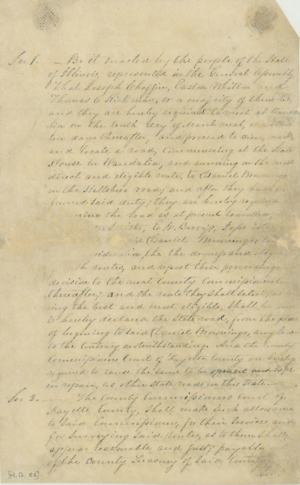 Sec 1. — Be it enacted by the people of the State
of Illinois, represented in the General Assembly
That Joseph Chaffin, Easton Whitten and
Thomas C. Kirkman, or a majority of them be,
and they are hereby required to meet at Vanda-
lia on the tenth day of next, or within
ten days thereafter, and proceed to view, mark
and locate a road, commencing at the State
House in Vandalia, and running on the most
direct and eligible route, to Daniel Mennings
on the road; and after they have per-
formed said duty; they are hereby required
the road as at present located,
to H.
Daniel Mennings
the
routes, and report their proceedings
to the next County Commissioners
thereafter; and the route they shall
the best and most eligible, shall be and
is hereby declared the State road, from the place
of beginning to said Daniel Mennings, any law
to the contrary notwithstanding. And the County
Commissioners Court of Fayette County are hereby
required to cause the same to be opened and kept
in repair, as other State roads in this State.
Sec 2. — The County Commissioners Court of
Fayette County, shall make such allowance
to said Commissioners, for their services and
for surveying said routes, as to them shall
appear reasonable and just, payable
of the County Treasury of said County.